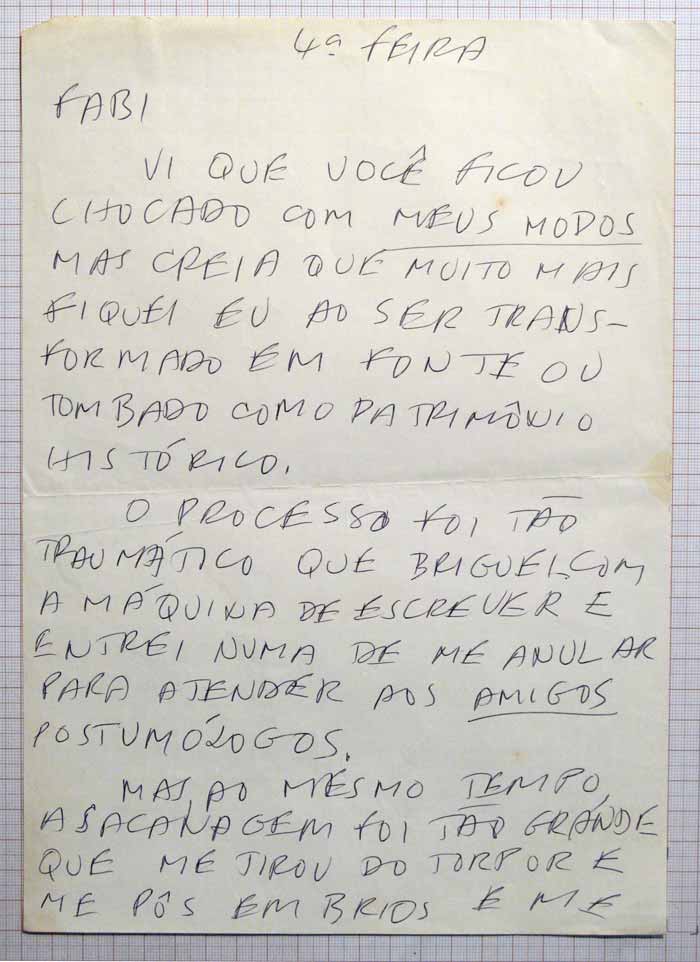 4ª FEIRA
FABI
VI QUE VOCÊ FICOU
CHOCADO COM MEUS MODOS
MAS CREIA QUE MUITO MAIS
FIQUEI EU AO SER TRANS-
FORMADO EM FONTE OU
TOMBADO COMO PATRIMÔNIO
HISTÓRICO.
O PROCESSO FOI TÃO
TRAUMÁTICO QUE BRIGUEI COM
A MÁQUINA DE ESCREVER E
ENTREI NUMA DE ME ANULAR
PARA ATENDER AOS AMIGOS
POSTUMÓLOGOS.
MAS, AO MESMO TEMPO,
A SACANAGEM FOI TÃO GRANDE
QUE ME TIROU DO TORPOR E
ME PÔS EM BRIOS E ME